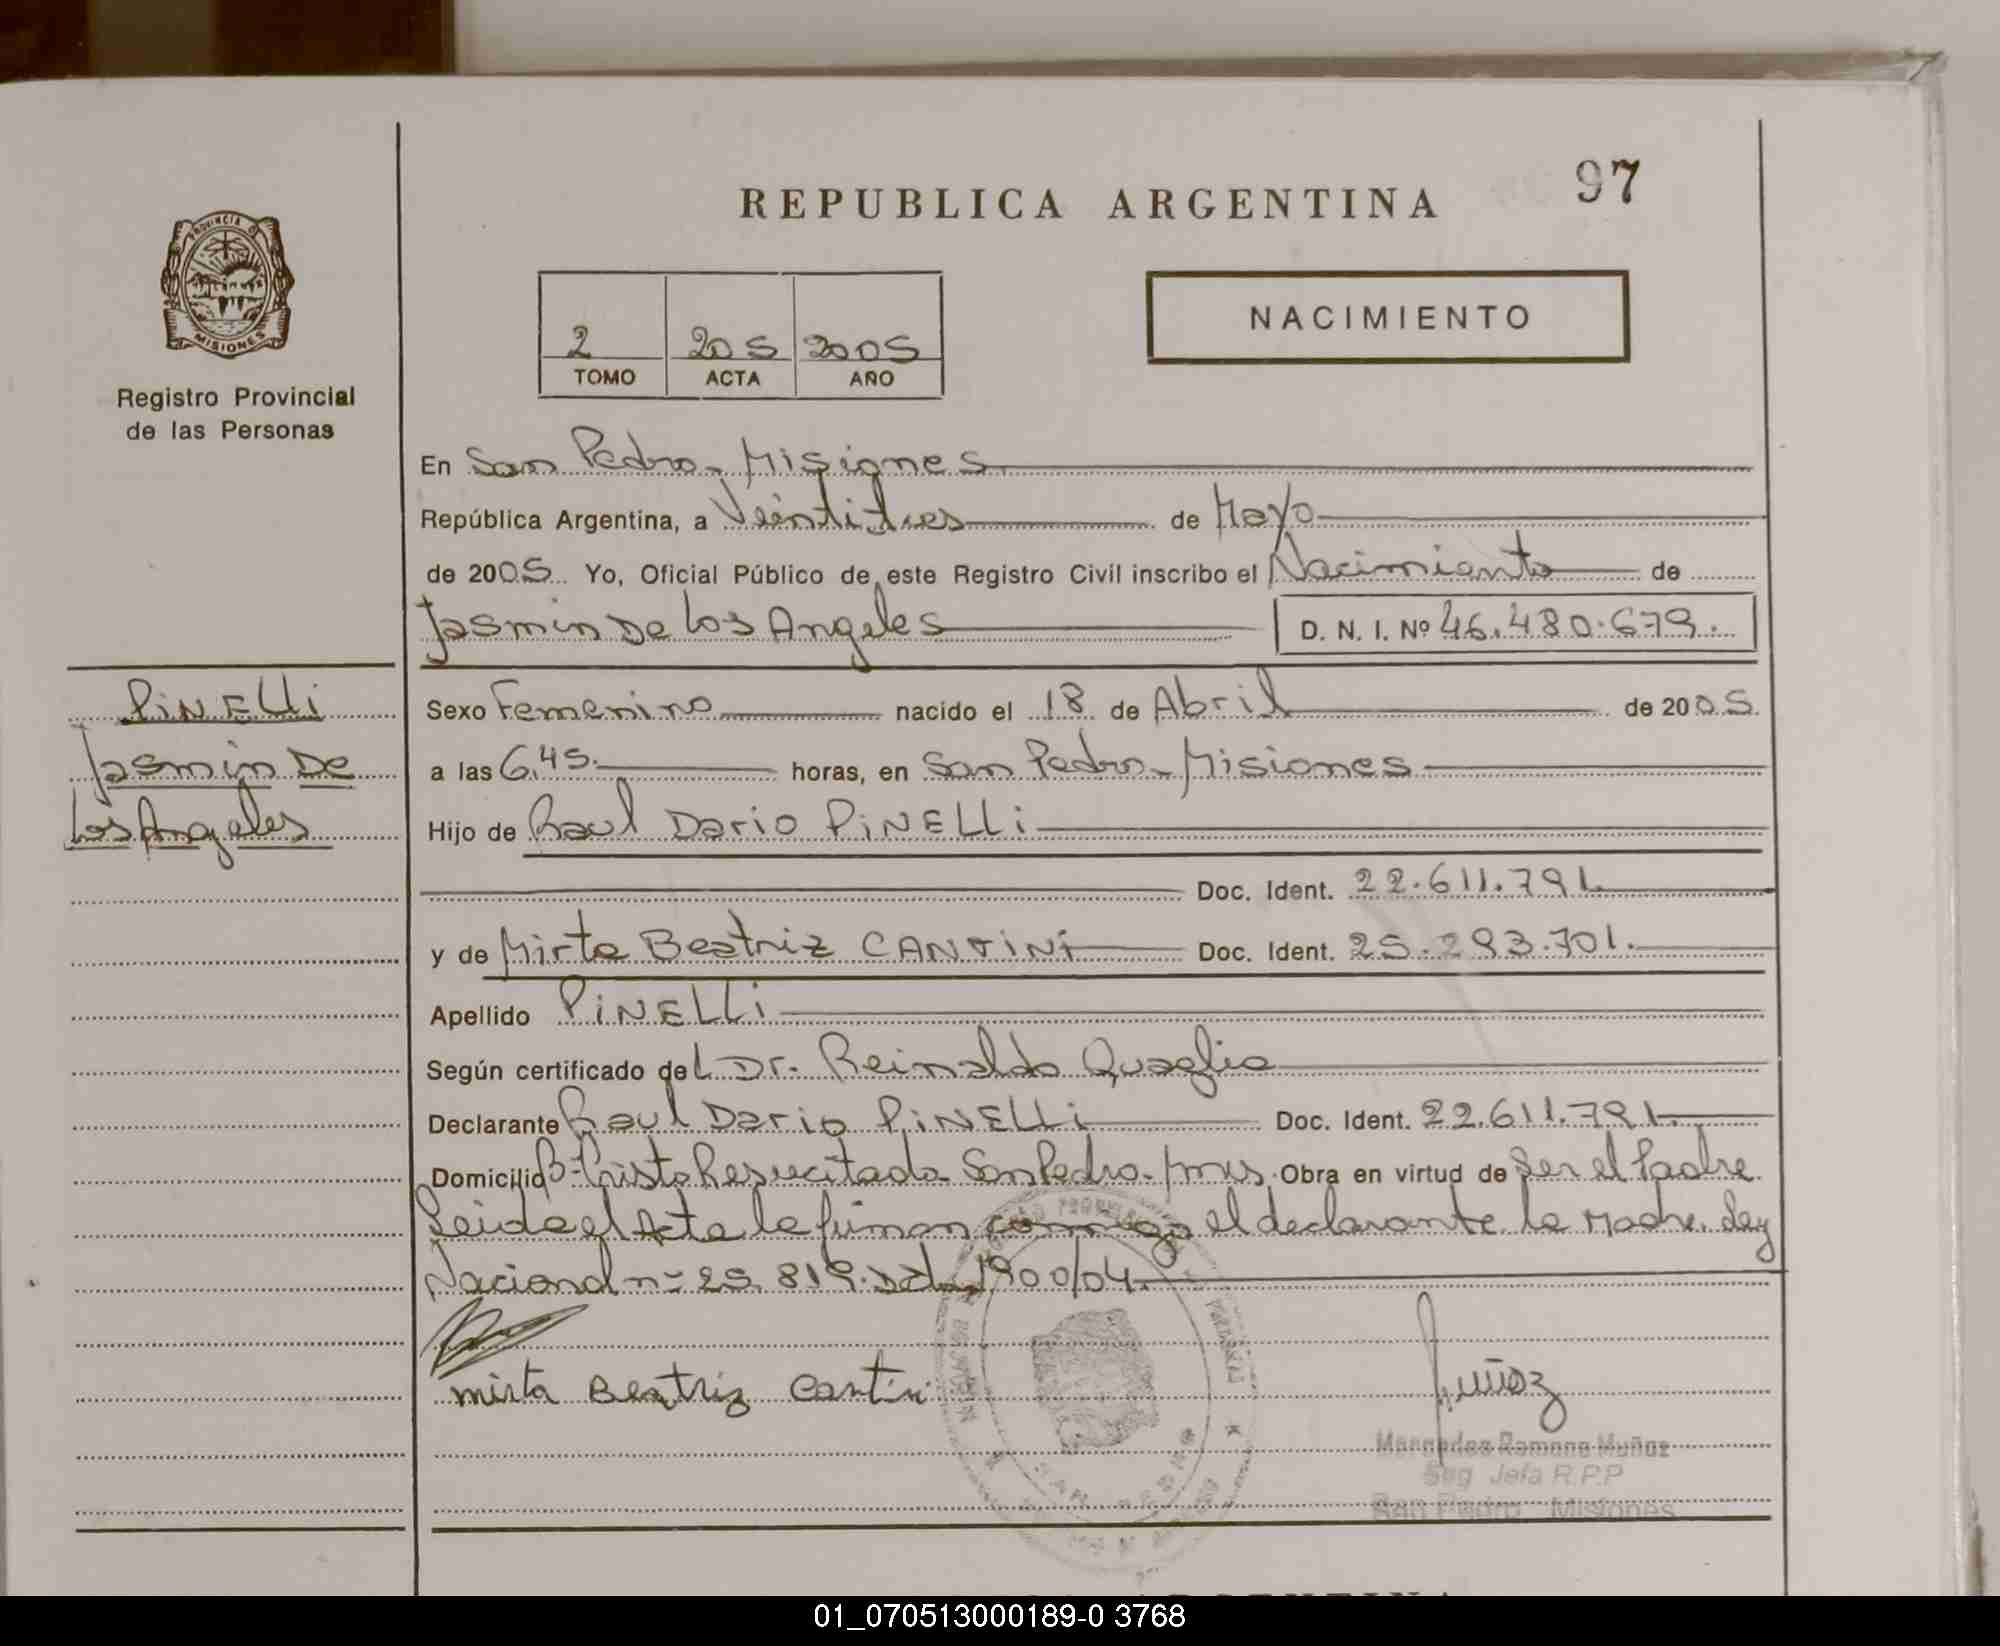 97
REPUBLICA ARGENTINA
PROVINCIA DE
MISIONES
Registro Provincial
de las Personas
NACIMIENTO
2 205 2005
TOMO ACTA AÑO
En San Pedro - Misiones
República Argentina, a Veintitres de Mayo
de 2005 Yo, Oficial Público de este Registro Civil inscribo el Nacimiento de
Jasmin De Los Angeles D. N. I. Nº 46.480.679.
PiNELLi
Jasmin De
Los Angeles
Sexo Femenino nacido el 18 de Abril de 2005
a las 6,45 horas, en San Pedro - Misiones
Hijo de Raul Dario PiNELLi
Doc. Ident. 22.611.791
y de Mirta Beatriz CANTiNi Doc. Ident. 25.293.701.
Apellido PiNELLi
Según certificado del Dr. Reinaldo Quaglia
Declarante Raul Dario PiNELLi Doc. Ident. 22.611.791
Domicilio Bº Cristo Resucitado San Pedro - Mnes Obra en virtud de Ser el Padre
Leida el Acta la firman conmigo el declarante la Madre. Ley
Nacional nº 25.819. 1900/04
Mirta Beatriz Cantini
Muñoz
Mercedes Ramona Muñoz
Seg Jefa R.P.P
San Pedro Misiones
SAN PEDRO
01_070513000189-0 3768